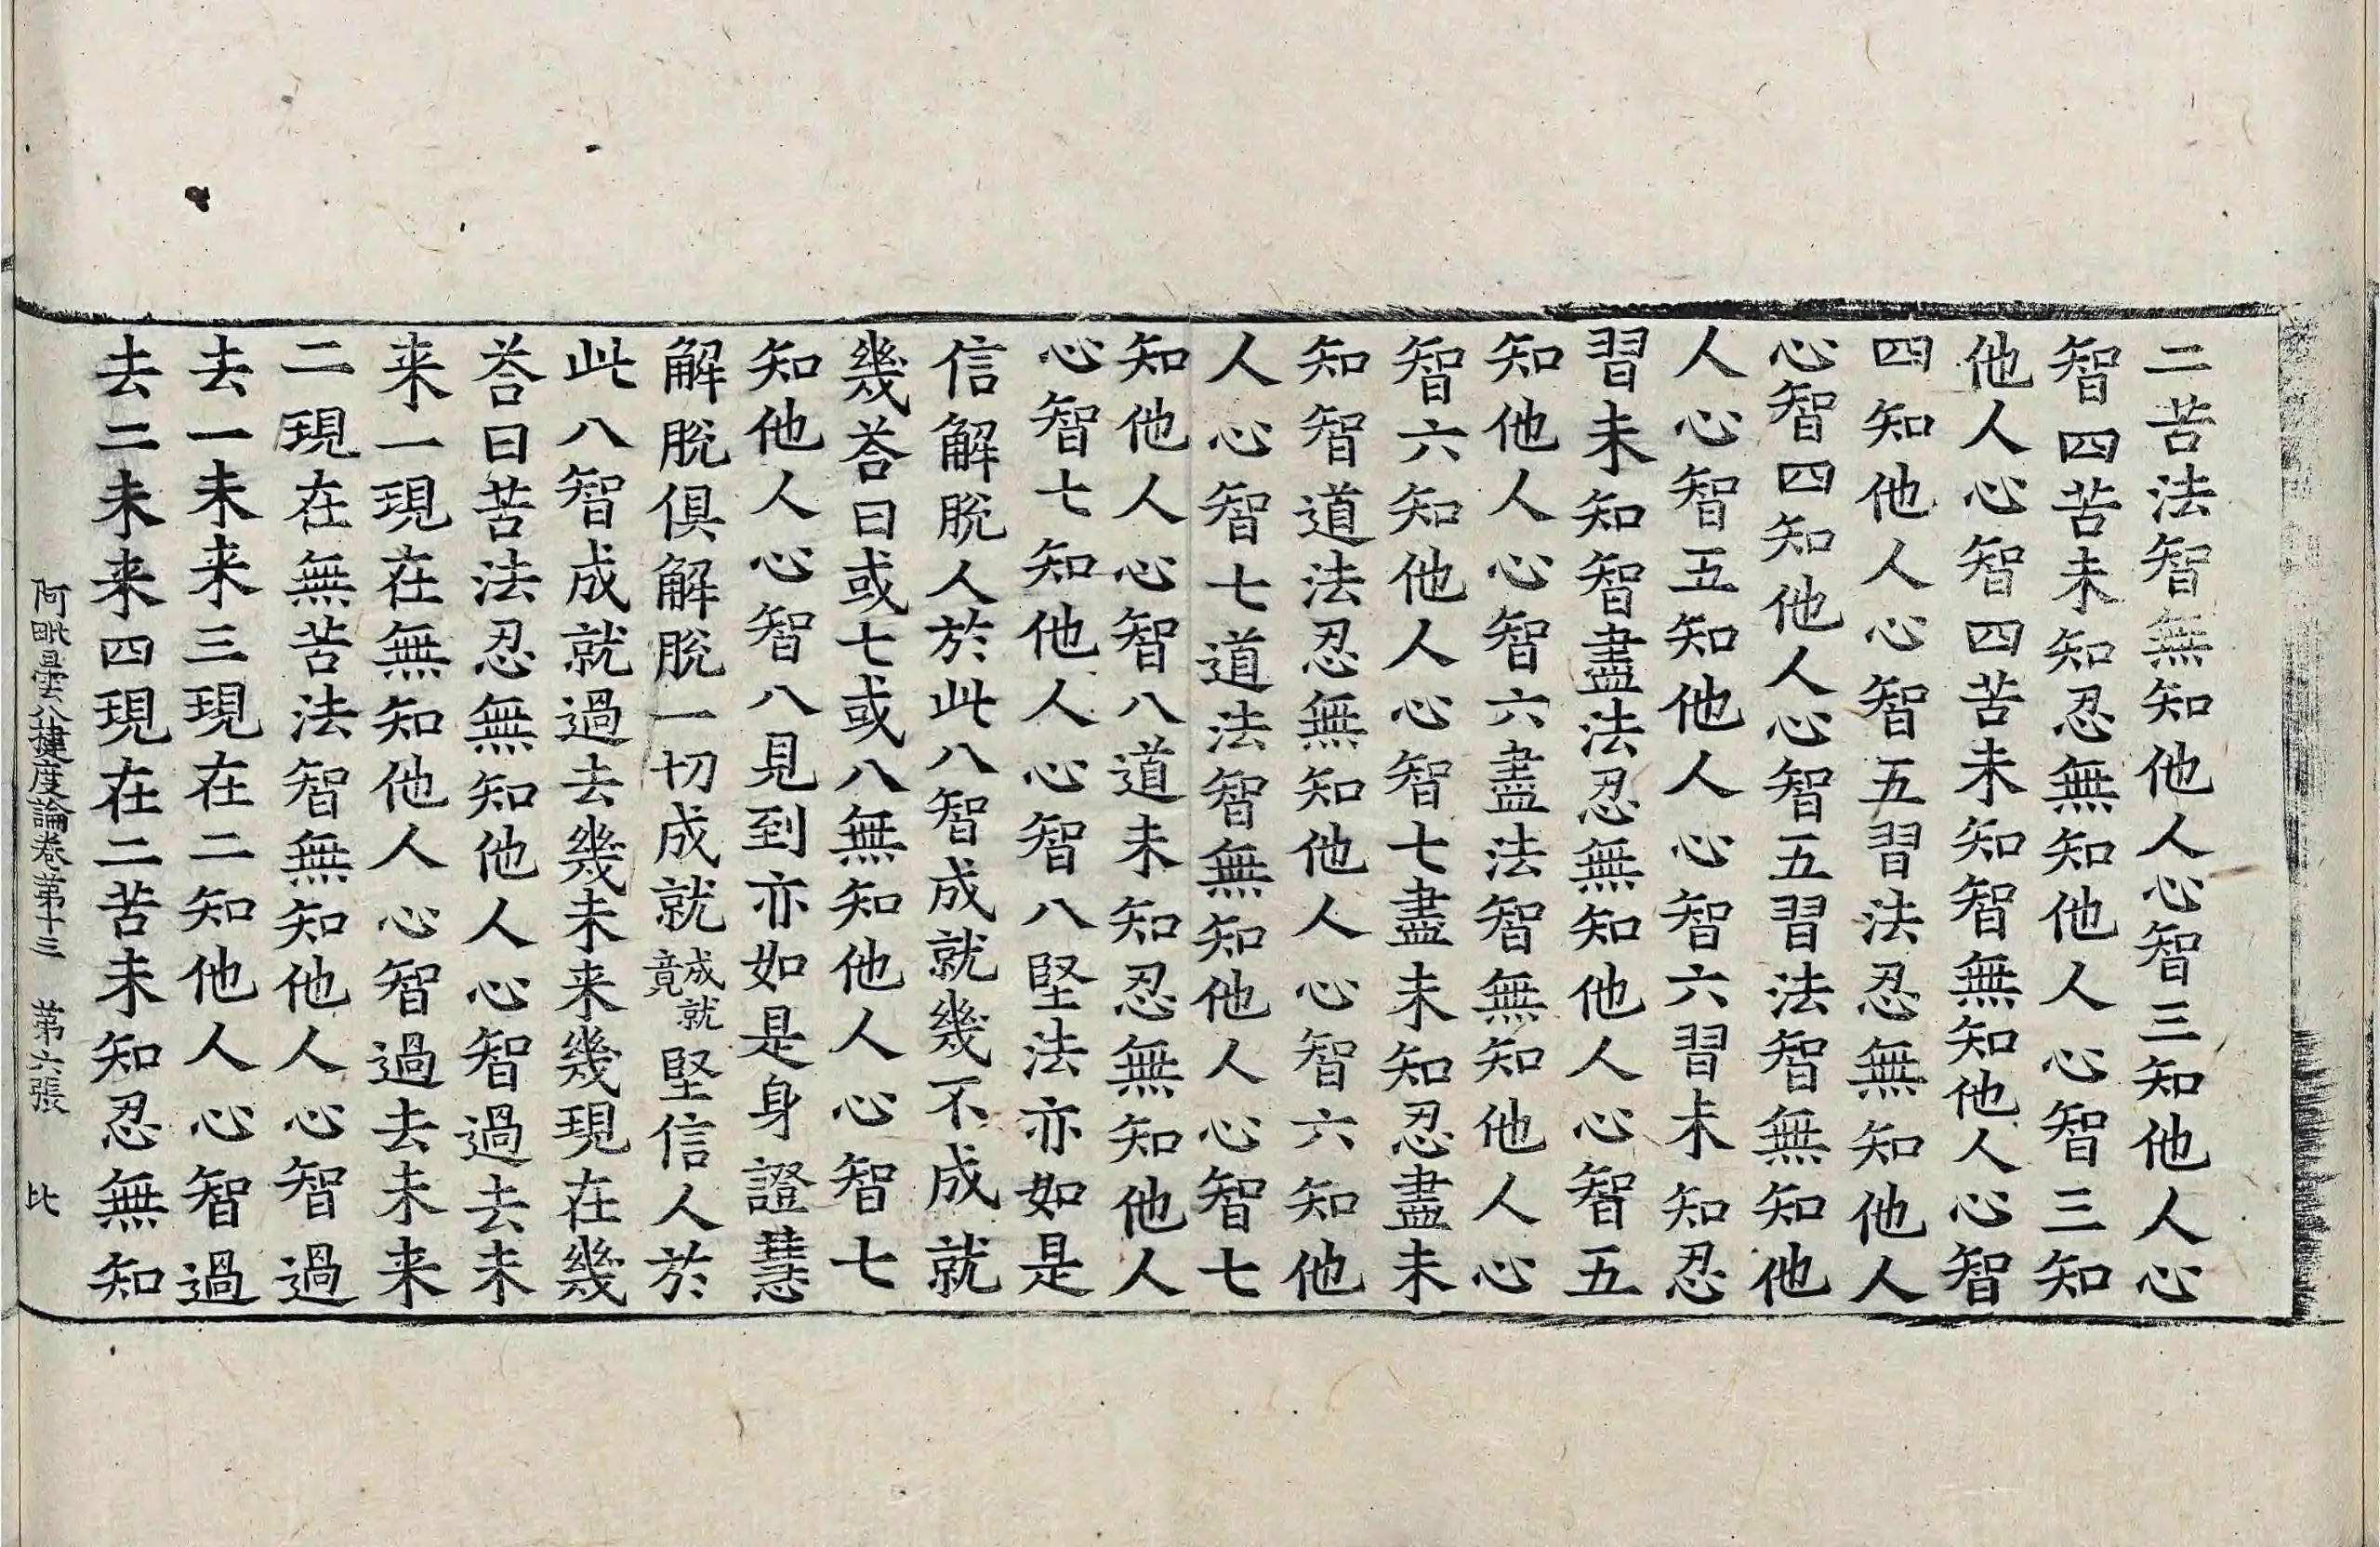 二苦法智無知他人心智三知他人心
智四苦未知忍無知他人心智三知
他人心智四苦未知智無知他人心智
四知他人心智五習法忍無知他人
心智四知他人心智五習法智無知他
人心智五知他人心智六習未知忍
習未知智盡法忍無知他人心智五
知他人心智六盡法智無知他人心
智六知他人心智七盡未知忍盡未
知智道法忍無知他人心智六知他
人心智七道法智無知他人心智七
知他人心智八道未知忍無知他人
心智七知他人心智八堅法亦如是
信解脫人於此八智成就幾不成就
幾荅曰或七或八無知他人心智七
知他人心智八見到亦如是身證慧
解脫俱解脫一切成就成就竟堅信人於
此八智成就過去幾未来幾現在幾
荅曰苦法忍無知他人心智過去未
来一現在無知他人心智過去未来
二現在無苦法智無知他人心智過
去一未来三現在二知他人心智過
去二未来四現在二苦未知忍無知
阿毗曇八揵度論卷第十三 第六張 比